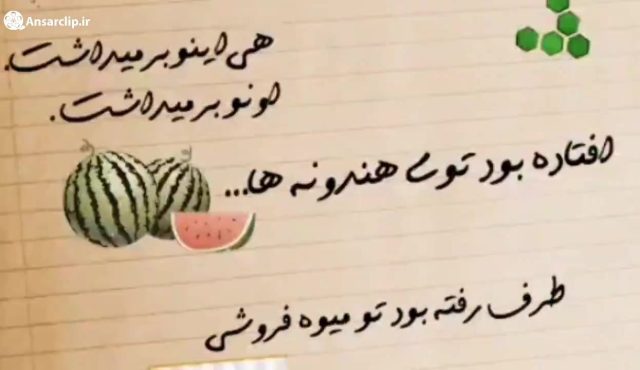 Ansarclip.ir
هی اینو برمیداشت.
اونو برمیداشت.
افتاده بود توی هندونه ها...
طرف رفته بود تو میوه فروشی